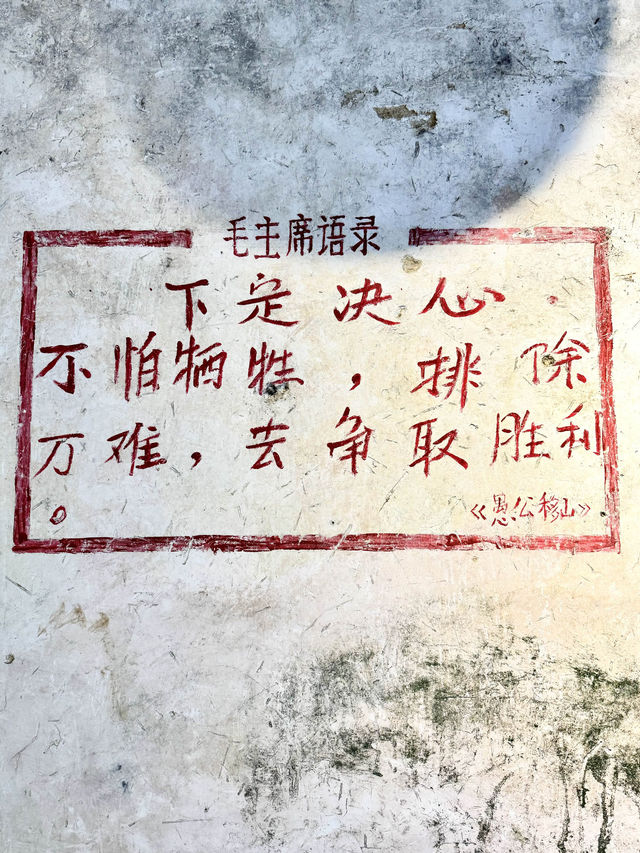 毛主席语录
下定决心
不怕牺牲，排除
万难，去争取胜利
。
《愚公移山》